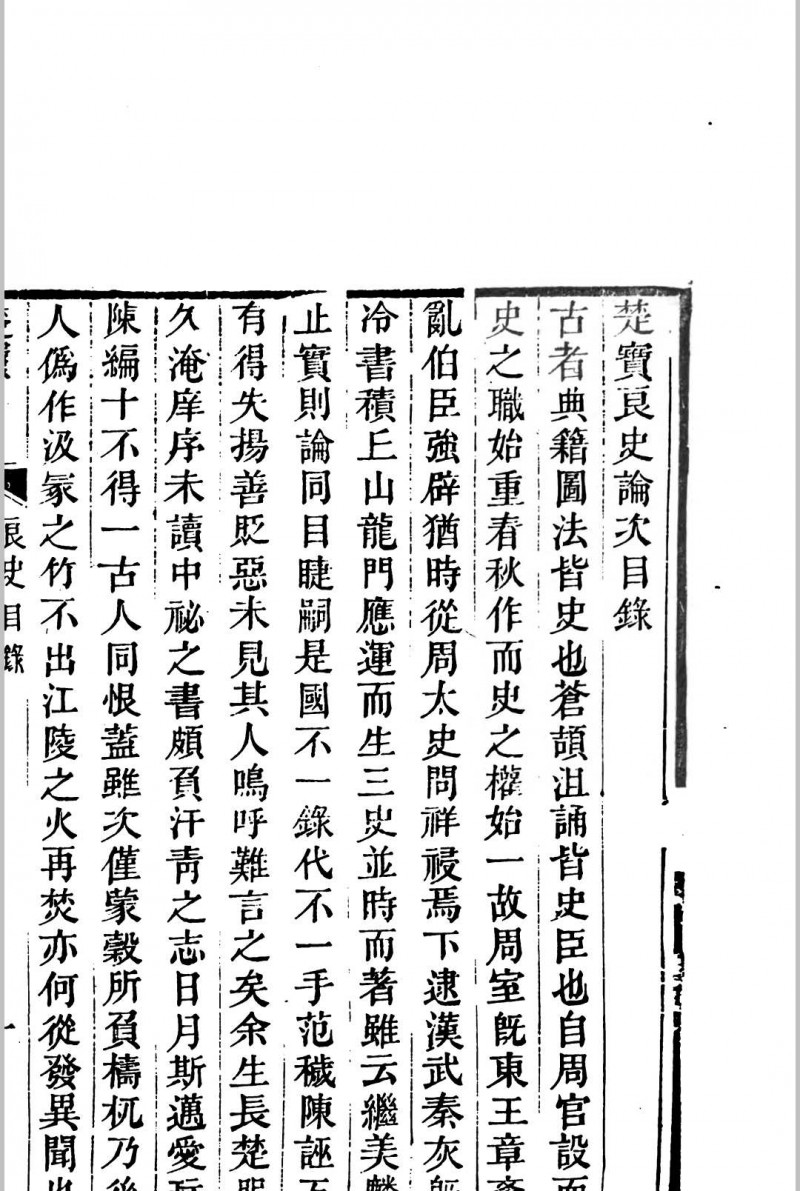 楚寶良史論次目錄
古者典籍圖法皆史也蒼頡沮誦皆史臣也自周官設而
史之職始重春秋作而史之權始一故周室旣東王章
亂伯臣強辟猶時從周太史問祥祲焉下逮漢武秦灰
冷書積丘山龍門應運而生三史並時而著雖云繼美麟
止實則論同目睫嗣是國不一錄代不一手范穢陳誣
有得失揚善貶惡未見其人嗚呼難言之矣余生長楚
久淹庠序未讀中祕之書頗負汗靑之志日月斯邁愛
陳編十不得一古人同恨蓋雖次僅蒙穀所負檮杌乃後
人僞作汲冢之竹不出江陵之火再焚亦何從發異聞
良史目錄
一